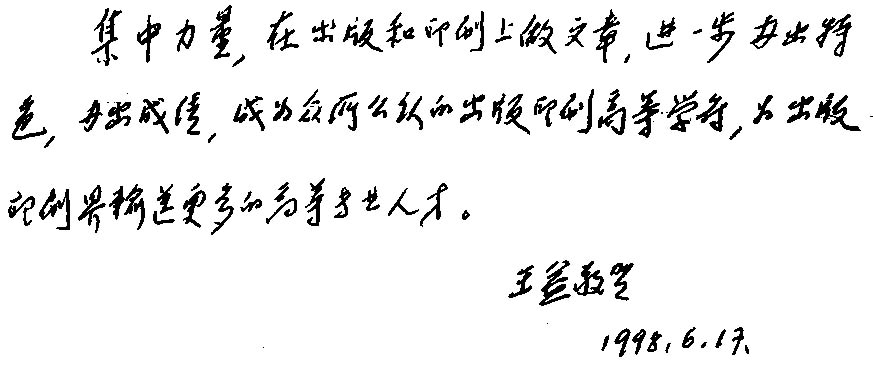 集中力量,在出版和印刷上做文章,进一步办出特
色,办出成绩,成为众所公认的出版印刷高等学府,为出版
印刷界输送更多的高等专业人才。
王益敬贺
1998.6.17.